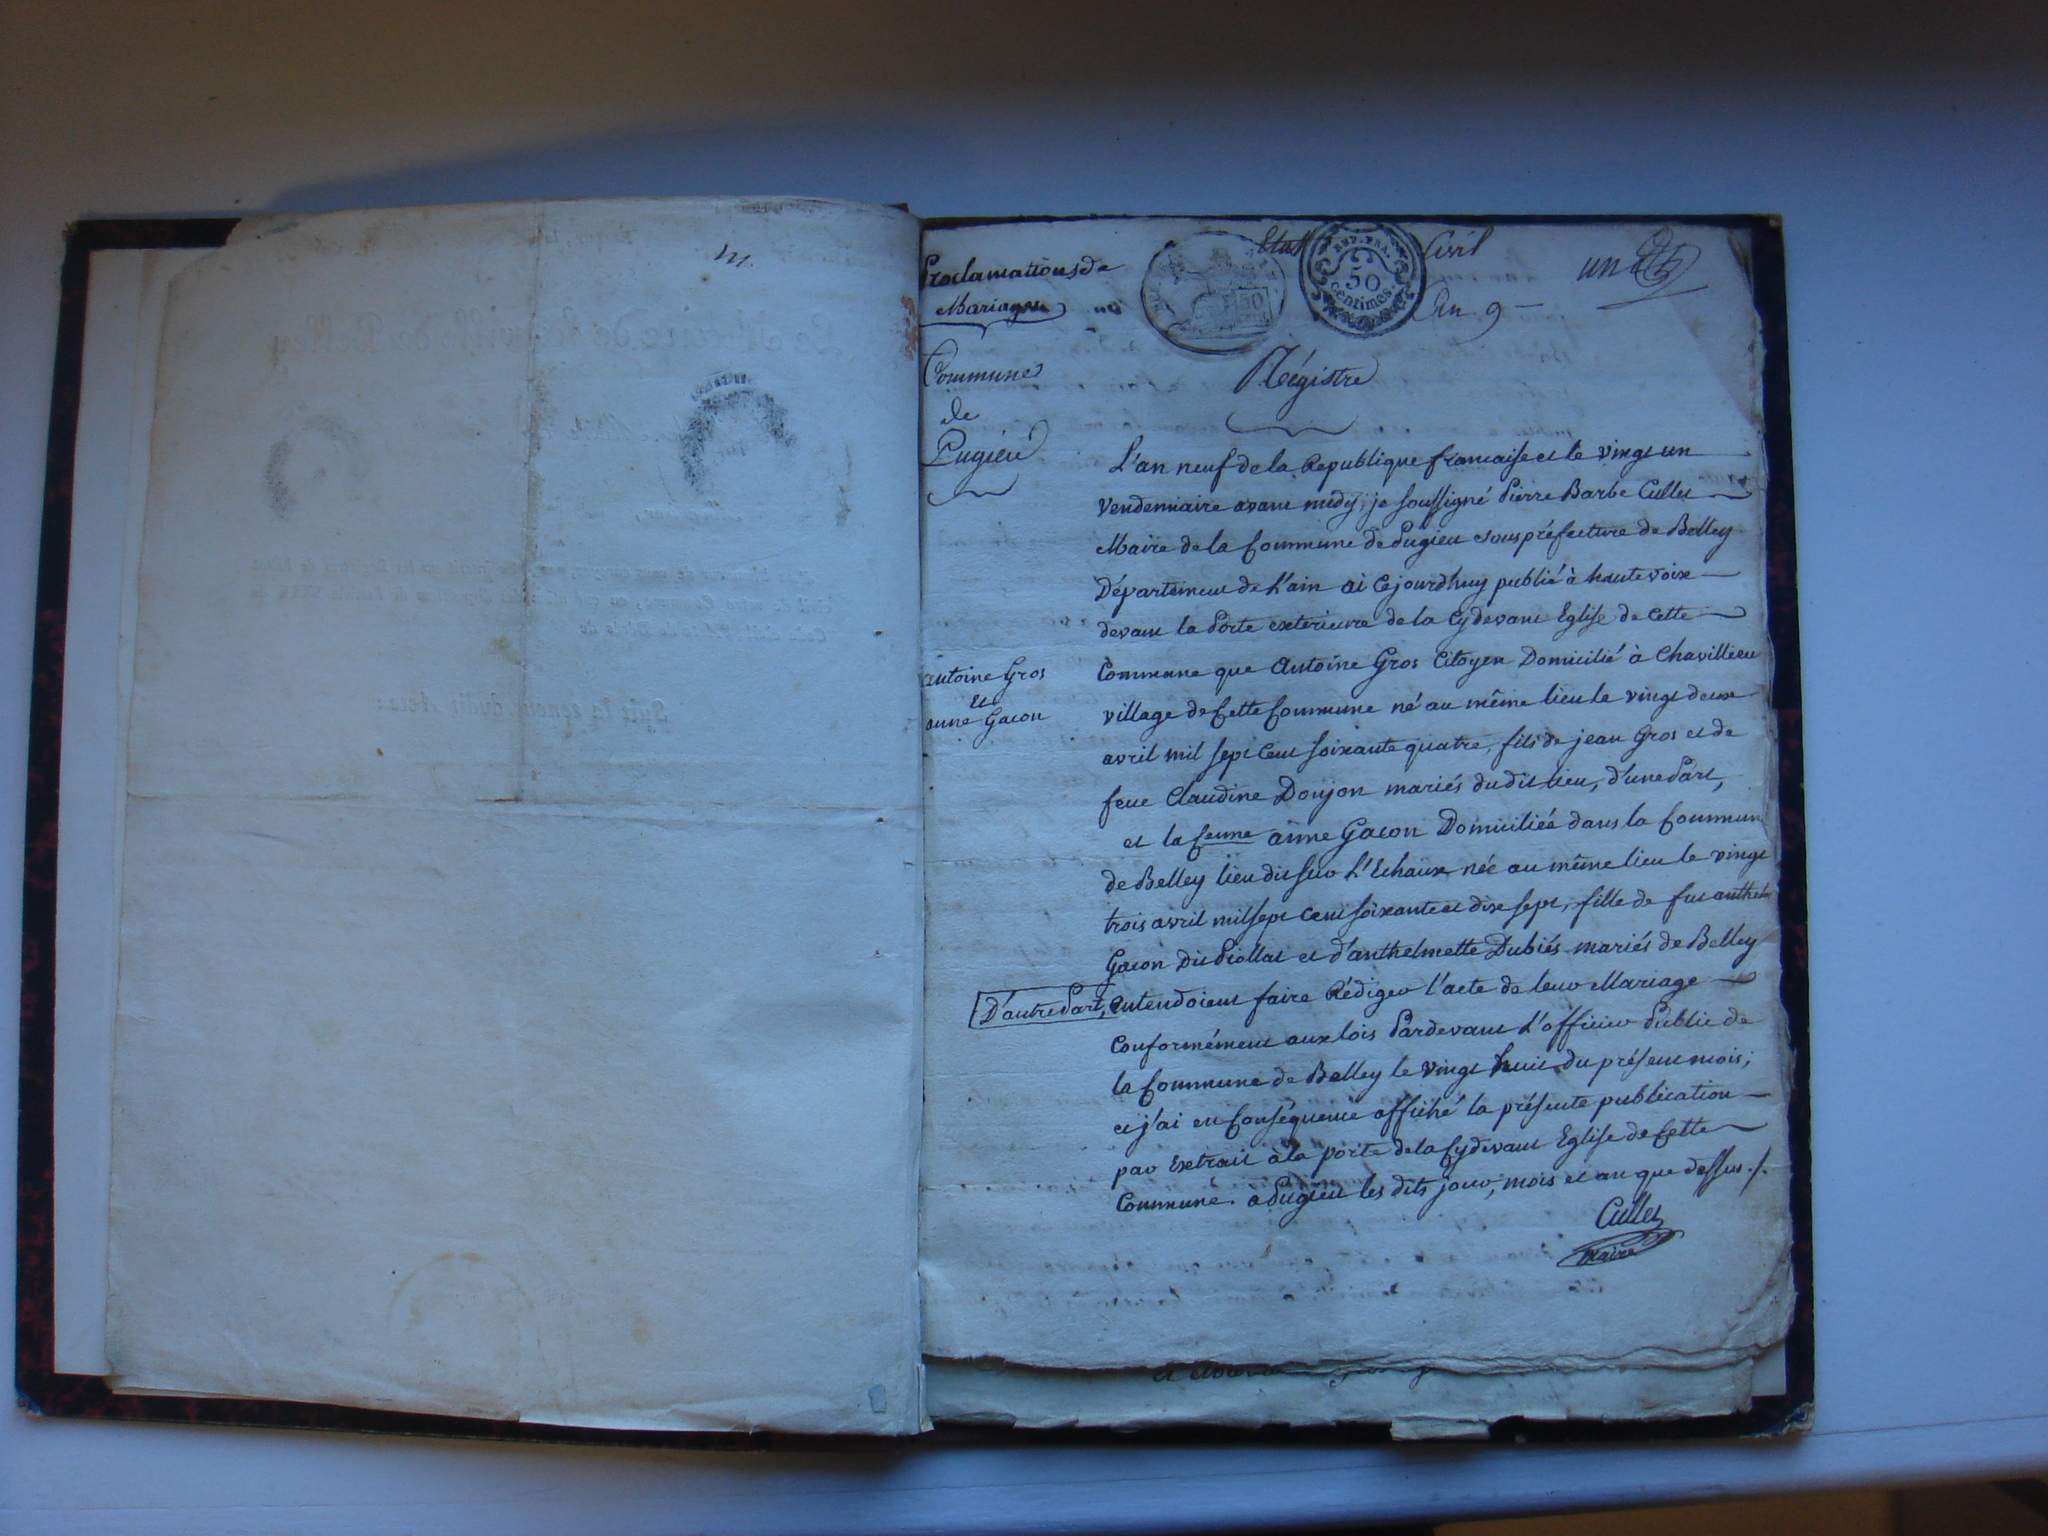 Proclamations de
Mariages
Etat Civil
REP. FRA.
50
centimes.
50
An 9
un
Commune
de
Pugieu
Régistre
L'an neuf de la Republique francaise et le vingt un
Vendemiaire avant midy; je soussigné Pierre Barbe Cullet
Maire de la Commune de Pugieu sous préfecture de Belley
Département de L'ain ai Cejourdhuy publié à haute voix
devant la Porte exterieure de la Cydevant Eglise de Cette
Antoine Gros
et
anne Gacon
Commune que Antoine Gros Citoyen Domicilié à Chavillieu
village de Cette Commune né au même lieu le vingt deux
avril mil sept Cent soixante quatre, fils de jean Gros et de
feue Claudine Donjon mariés du dit lieu, d'une Part,
et la anne Gacon Domiciliée dans la Commune
de Belley lieu dit sur L'Echaux née au même lieu le vingt
trois avril mil sept Cent soixante et dix sept, fille de fut anthelme
Gacon Dit Piollat et d'anthelmette Dubiés mariés de Belley
D'autre Part, entendoient faire Rédiger l'acte de leur Mariage
Conformément aux lois Pardevant L'officier Public de
la Commune de Belley le vingt huit du présent mois;
et j'ai en Conséquence affiché la présente publication
par Extrait à la porte de la Cydevant Eglise de Cette
Commune. à Pugieu les dits jour, mois et an que dessus ./.
Cullet
Maire
Le Maire de la ville de Belley
Suit la teneur dudit Acte :